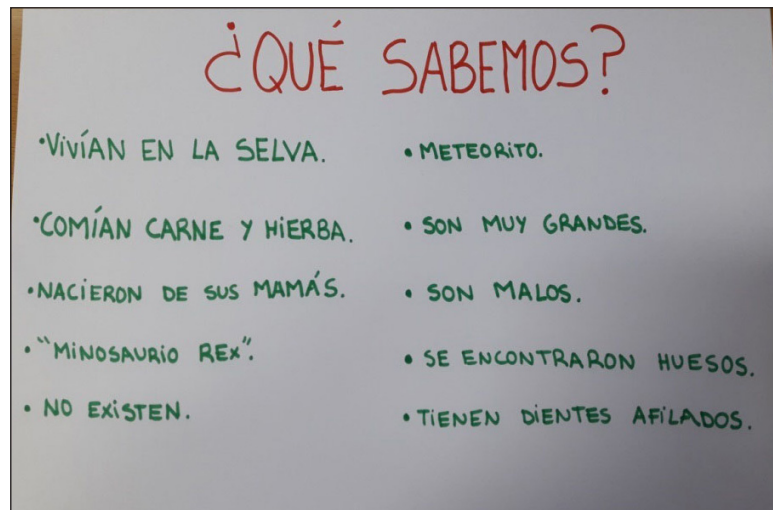 ¿QUÉ SABEMOS?
•VIVÍAN EN LA SELVA.
•COMÍAN CARNE Y HIERBA.
•NACIERON DE SUS MAMÁS.
•"MINOSAURIO REX".
•NO EXISTEN.
•METEORITO.
•SON MUY GRANDES.
•SON MALOS.
•SE ENCONTRARON HUESOS.
•TIENEN DIENTES AFILADOS.